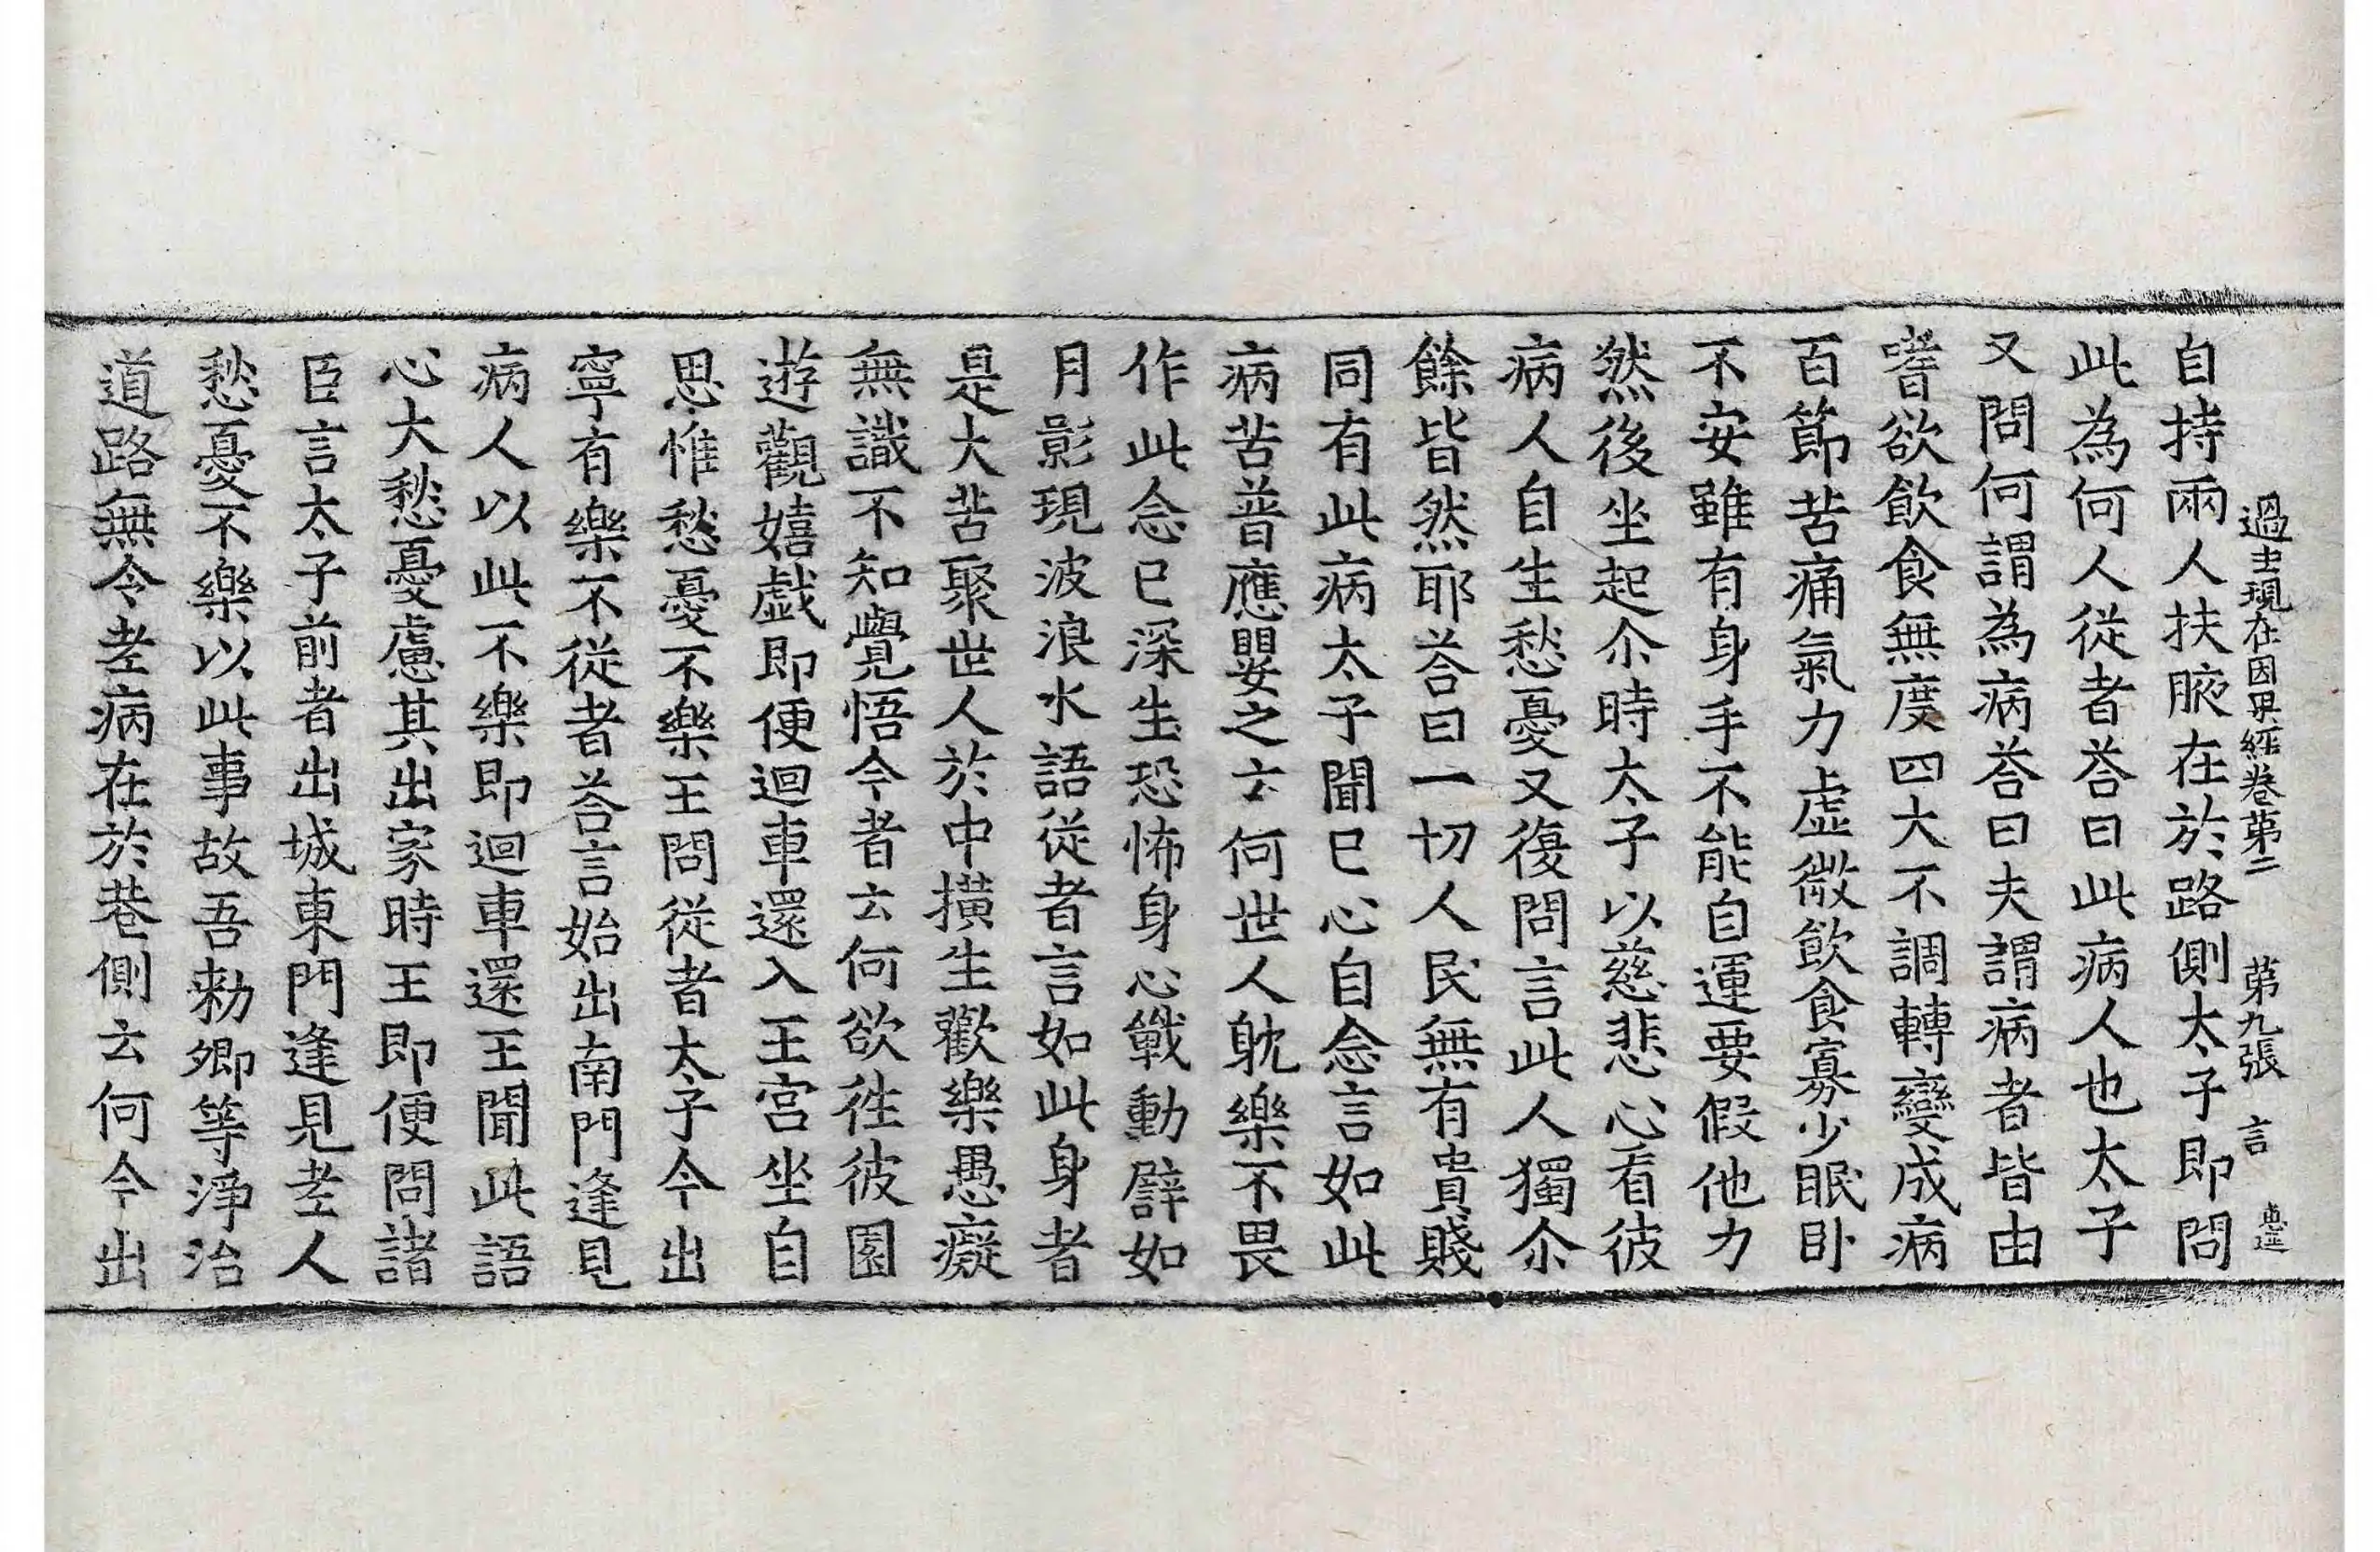 過去現在因果経卷苐二 苐九張 言
自持兩人扶腋在於路側太子即問
此為何人從者荅曰此病人也太子
又問何謂為病荅曰夫謂病者皆由
嗜欲飲食無度四大不調轉變成病
百節苦痛氣力虛微飲食寡少眠卧
不安雖有身手不能自運要假他力
然後坐起尒時太子以慈悲心看彼
病人自生愁憂又復問言此人獨尒
餘皆然耶荅曰一切人民無有貴賤
同有此病太子聞已心自念言如此
病苦普應嬰之云何世人躭樂不畏
作此念已深生恐怖身心戰動譬如
月影現波浪水語從者言如此身者
是大苦聚世人於中撗生歡樂愚癡
無識不知覺悟今者云何欲往彼園
遊觀嬉戯即便迴車還入王宮坐自
思惟愁憂不樂王問從者太子今出
寧有樂不從者荅言始出南門逢見
病人以此不樂即迴車還王聞此語
心大愁憂慮其出家時王即便問諸
臣言太子前者出城東門逢見老人
愁憂不樂以此事故吾勑卿等淨治
道路無令老病在於巷側云何今出